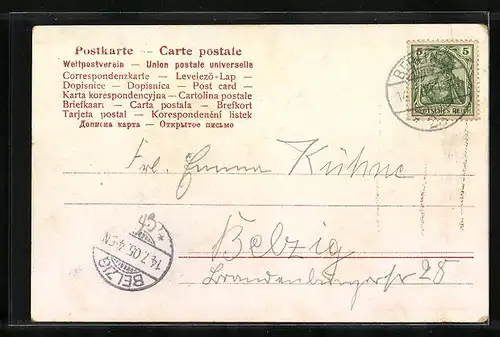 Postkarte — Carte postale
Weltpostverein — Union postale universelle
Correspondenzkarte — Levelező-Lap —
Dopisnice — Dopisnica — Post card —
Karta korespondencyjna — Cartolina postale
Briefkaart — Carta postala — Brefkort
Tarjeta postal — Korespondenční listek
Дописна карта — Открытое письмо
5 5
DEUTSCHES REICH
Frl. Emma Kühne
Belzig
Brandenburgerstr 28
BELZIG
14.7.05. 4-5N